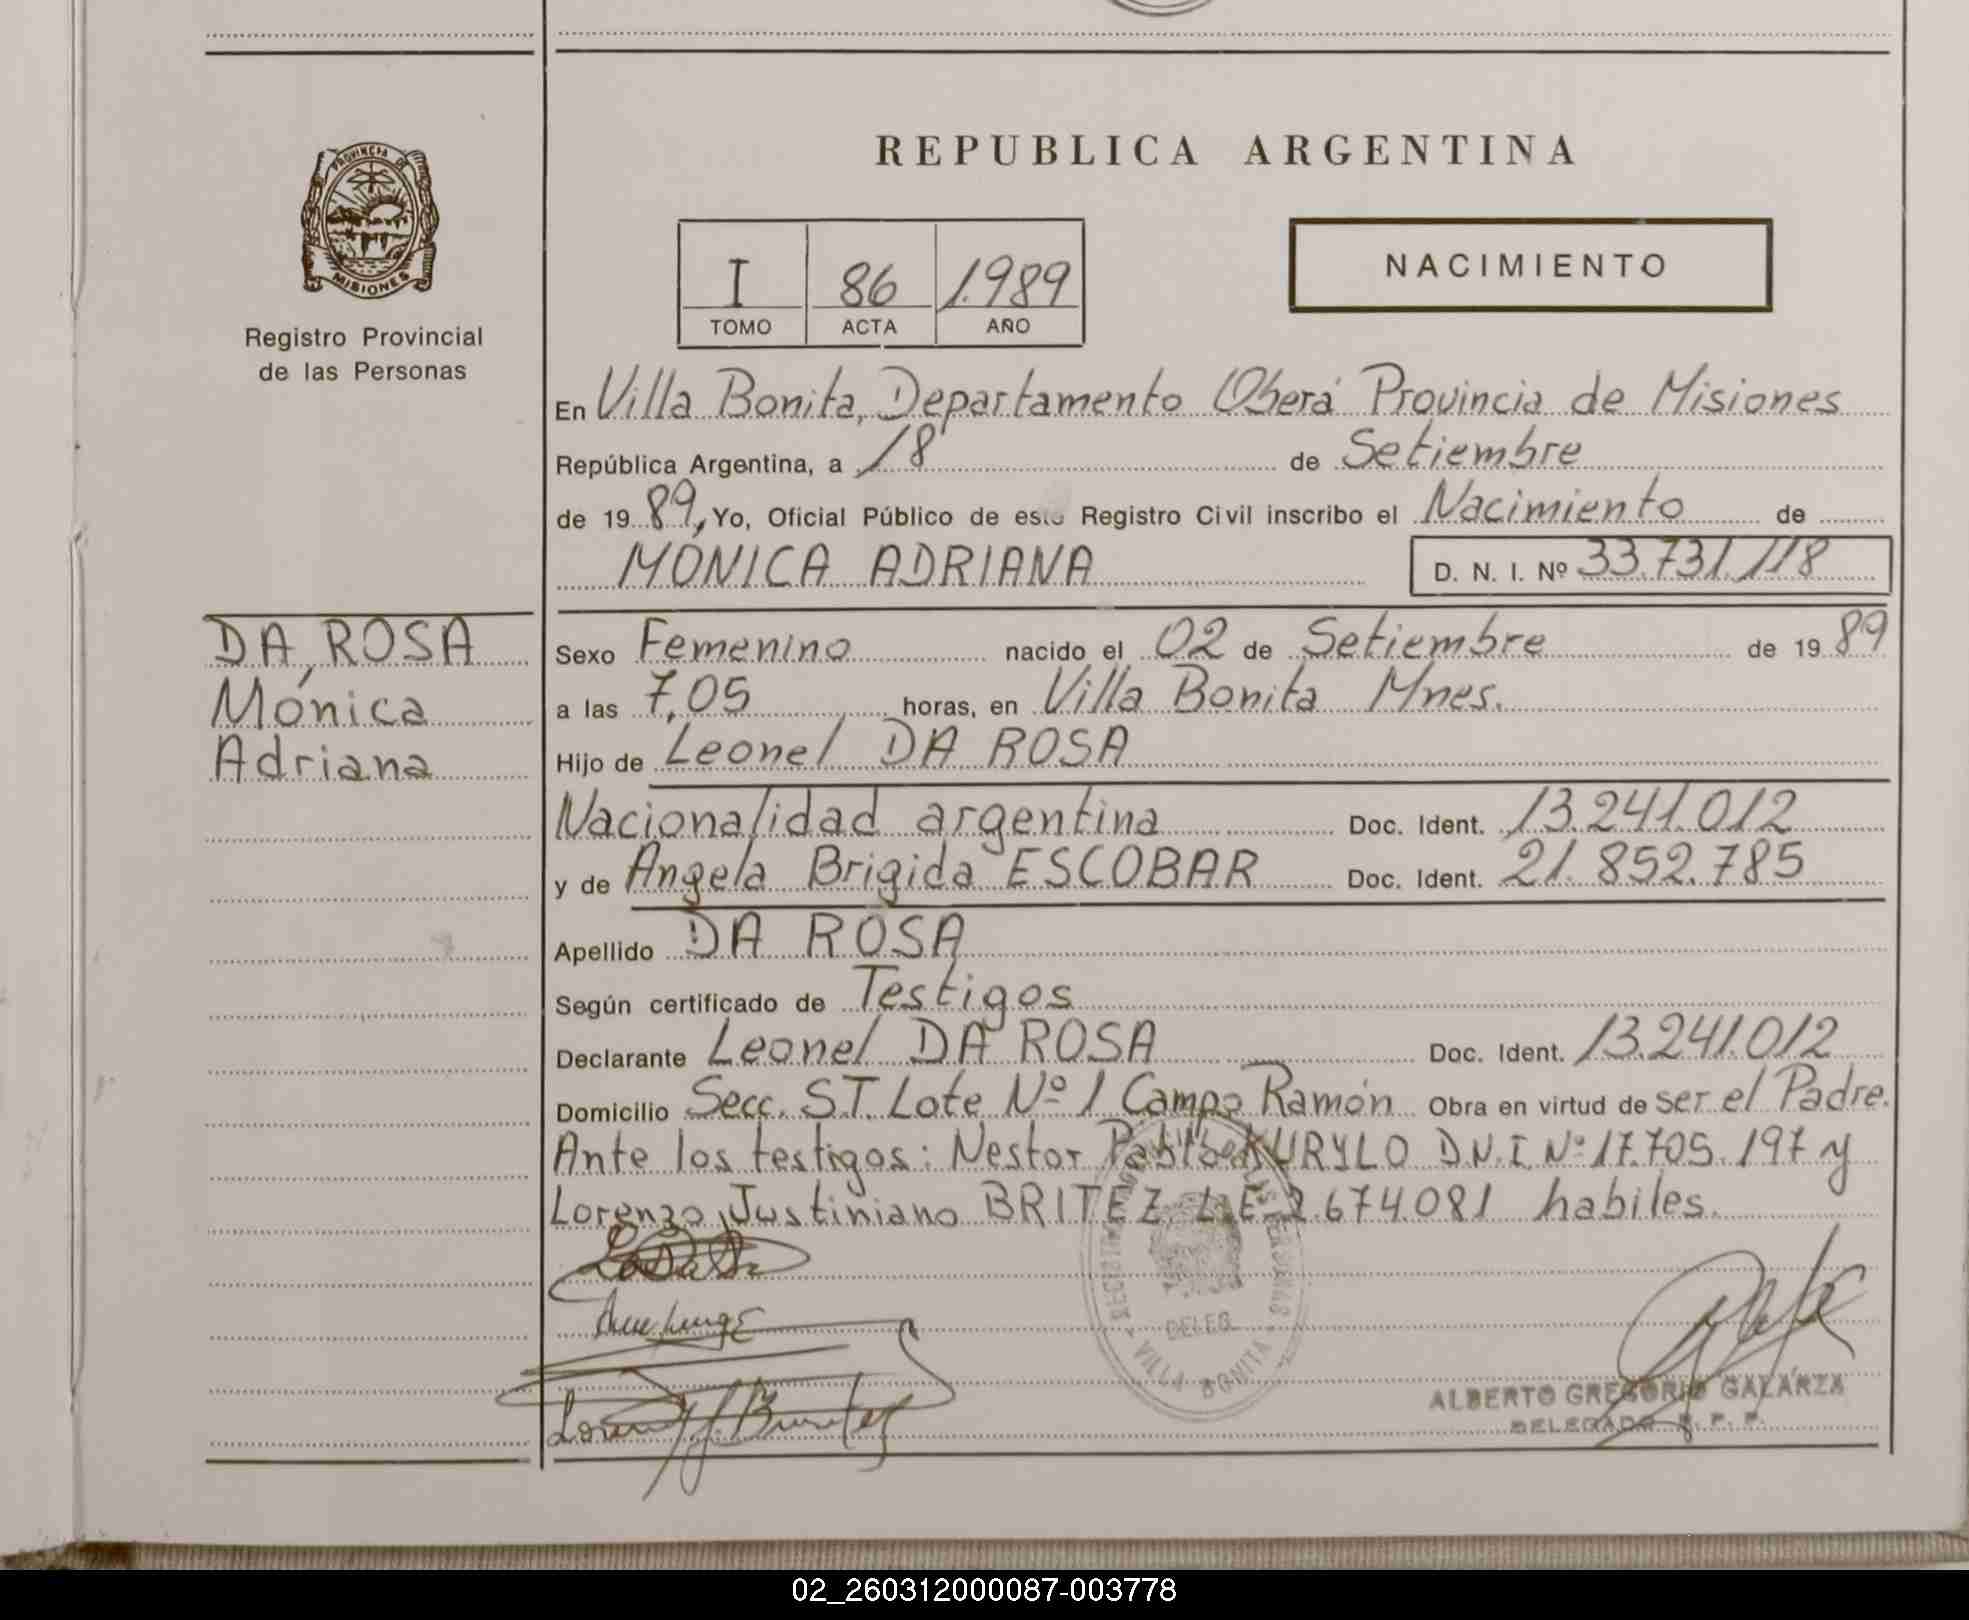 REPUBLICA ARGENTINA
PROVINCIA DE
MISIONES
Registro Provincial
de las Personas
I 86 1.989
TOMO ACTA AÑO
NACIMIENTO
En Villa Bonita, Departamento Oberá Provincia de Misiones
República Argentina, a 18 de Setiembre
de 19 89, Yo, Oficial Público de este Registro Civil inscribo el Nacimiento de
MONICA ADRIANA D. N. I. Nº 33.731.118
DA ROSA
Mónica
Adriana
Sexo Femenino nacido el 02 de Setiembre de 19 89
a las 7,05 horas, en Villa Bonita Mnes.
Hijo de Leonel DA ROSA
Nacionalidad argentina Doc. Ident. 13.241.012
y de Angela Brigida ESCOBAR Doc. Ident. 21.852.785
Apellido DA ROSA
Según certificado de Testigos
Declarante Leonel DA ROSA Doc. Ident. 13.241.012
Domicilio Secc. S.T. Lote Nº 1 Campo Ramón Obra en virtud de ser el Padre.
Ante los testigos: Nestor Pablo KURYLO D.N.I. Nº 17.705.197 y
Lorenzo Justiniano BRITEZ L.E. 2.674.081 habiles.
DELEG.
VILLA BONITA
ALBERTO GREGORIO GALARZA
DELEGADO R. P. P.
02_260312000087-003778